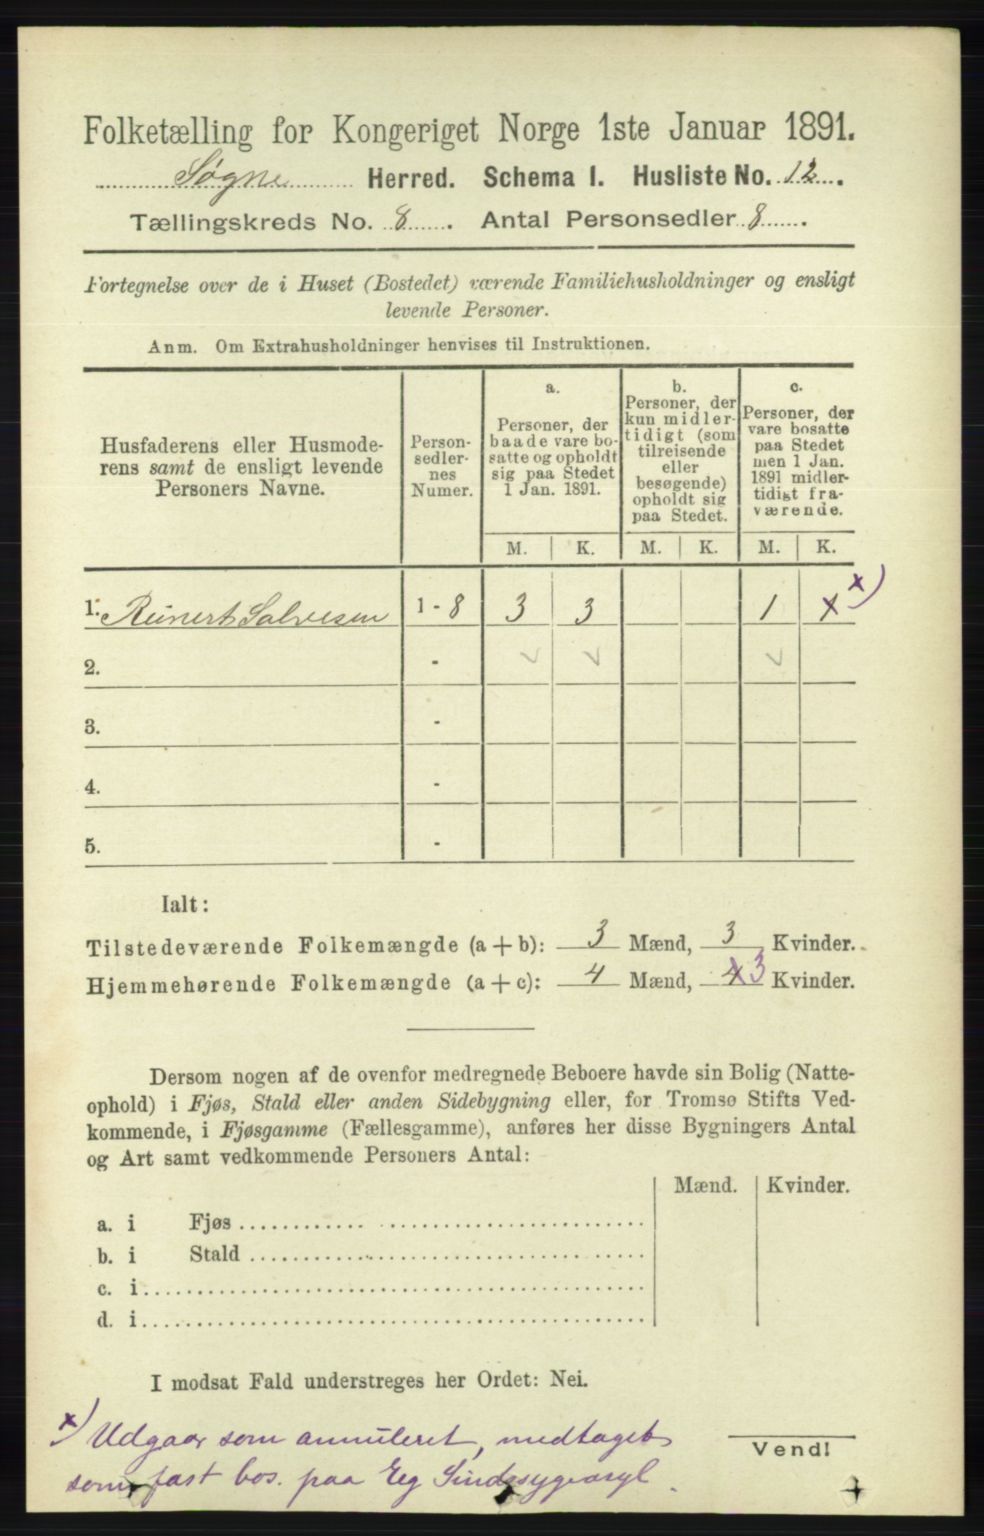 Folketælling for Kongeriget Norge 1ste Januar 1891.
Søgne Herred. Schema I. Husliste No. 12.
Tællingskreds No. 8. Antal Personsedler 8.
Fortegnelse over de i Huset (Bostedet) værende Familiehusholdninger og ensligt
levende Personer.
Anm. Om Extrahusholdninger henvises til Instruktionen.
Husfaderens eller Husmode-
rens samt de ensligt levende
Personers Navne.
Person-
sedler-
nes
Numer.
a.
Personer, der
baade vare bo-
satte og opholdt
sig paa Stedet
1 Jan. 1891.
b.
Personer, der
kun midler-
tidigt (som
tilreisende
eller
besøgende)
opholdt sig
paa Stedet.
c.
Personer, der
vare bosatte
paa Stedet
men 1 Jan.
1891 midler-
tidigt fra-
værende.
M. K. M. K. M. K.
1. Reinert Salvesen 1 - 8 3 3 1 x x)
2. -
3. -
4. -
5. -
Ialt:
Tilstedeværende Folkemængde (a + b): 3 Mænd, 3 Kvinder.
Hjemmehørende Folkemængde (a + c): 4 Mænd, 4 3 Kvinder.
Dersom nogen af de ovenfor medregnede Beboere havde sin Bolig (Natte-
ophold) i Fjøs, Stald eller anden Sidebygning eller, for Tromsø Stifts Ved-
kommende, i Fjøsgamme (Fællesgamme), anføres her disse Bygningers Antal
og Art samt vedkommende Personers Antal:
Mænd. Kvinder.
a. i Fjøs
b. i Stald
c. i
d. i
I modsat Fald understreges her Ordet: Nei.
x) Udgaar som annuleret, medtaget
som fast bos. paa Eg Sindssygeasyl.
Vend!